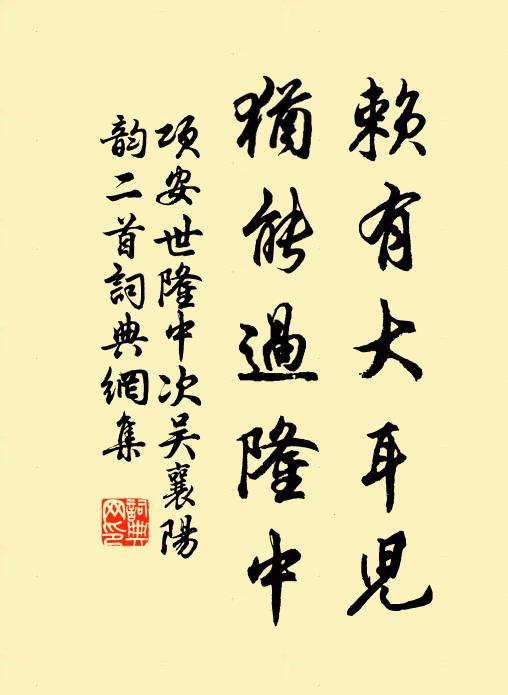 賴有大耳兒
猶能過隆中
項安世隆中次吴襄陽
韵二首詞典網集
詞典网印